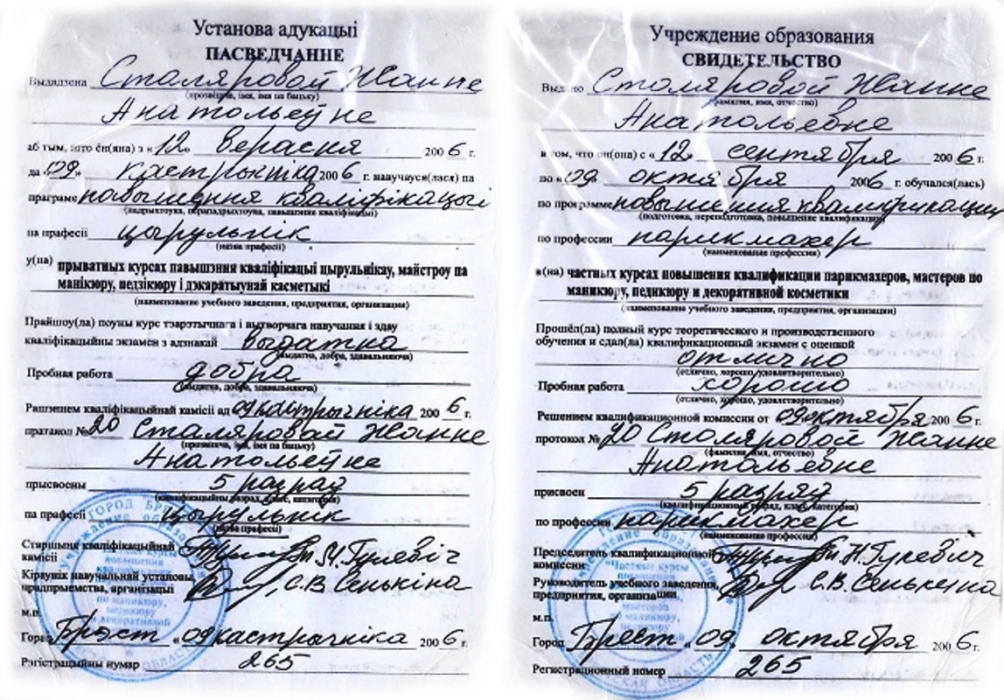 Установа адукацыі
ПАСВЕДЧАННЕ
Выдадзена Столяровой Жанне
(прозвішча, імя, імя па бацьку)
Анатольеўне
аб тым, што ён(яна) з «12» верасня 2006 г.
да «09» кастрычніка 2006 г. навучаўся(лася) па
праграме повышения кваліфікацыі
(падрыхтоўка, перападрыхтоўка, павышэнне кваліфікацыі)
па прафесіі цырульнік
(назва прафесіі)
у(на) прыватных курсах павышэння кваліфікацыі цырульнікаў, майстроў па
манікюру, педзікюру і дэкаратыўнай касметыкі
(наименование учебного заведения, предприятия, организация)
Прайшоў(ла) поўны курс тэарэтычнага і вытворчага навучання і здаў
кваліфікацыйны экзамен з адзнакай выдатна
(выдатна, добра, здавальняюча)
Пробная работа добра
(выдатна, добра, здавальняюча)
Рашэннем кваліфікацыйнай камісіі ад 09 кастрычніка 2006 г.
пратакол № 20 Столяровой Жанне
(прозвішча, імя, імя па бацьку)
Анатольеўне
прысвоены 5 разрад
(кваліфікацыйны разрад, клас, катэгорыя)
па прафесіі цырульнік
(назва прафесіі)
Старшыня кваліфікацыйнай
камісіі Гукевіч
Кіраўнік навучальнай установы,
прадпрыемства, арганізацыі С.В. Сенькіна
м.п.
Горад Брэст «09 кастрычніка 2006 г.
Рэгістрацыйны нумар 265
Учреждение образования
СВИДЕТЕЛЬСТВО
Выдано Столяровой Жанне
(фамилия, имя, отчество)
Анатольевне
в том, что он(она) с «12» сентября 2006 г.
по «09» октября 2006 г. обучался(лась)
по программе повышения квалификации
(подготовка, переподготовка, повышение квалификации)
по профессии парикмахер
(наименование профессии)
в(на) частных курсах повышения квалификации парикмахеров, мастеров по
маникюру, педикюру и декоративной косметики
(наименование учебного заведения, предприятия, организации)
Прошёл(ла) полный курс теоретического и производственного
обучения и сдал(ла) квалификационный экзамен с оценкой
отлично
(отлично, хорошо, удовлетворительно)
Пробная работа хорошо
(отлично, хорошо, удовлетворительно)
Решением квалификационной комиссии от 09 октября 2006 г.
протокол № 20 Столяровой Жанне
(фамилия, имя, отчество)
Анатольевне
присвоен 5 разряд
(квалификационный разряд, класс, категория)
по профессии парикмахер
(наименование профессии)
Председатель квалификационной
комиссии Гукевич
Руководитель учебного заведения,
предприятия, организации С.В. Сенькина
м.п.
Город Брест «09» октября 2006 г.
Регистрационный номер 265